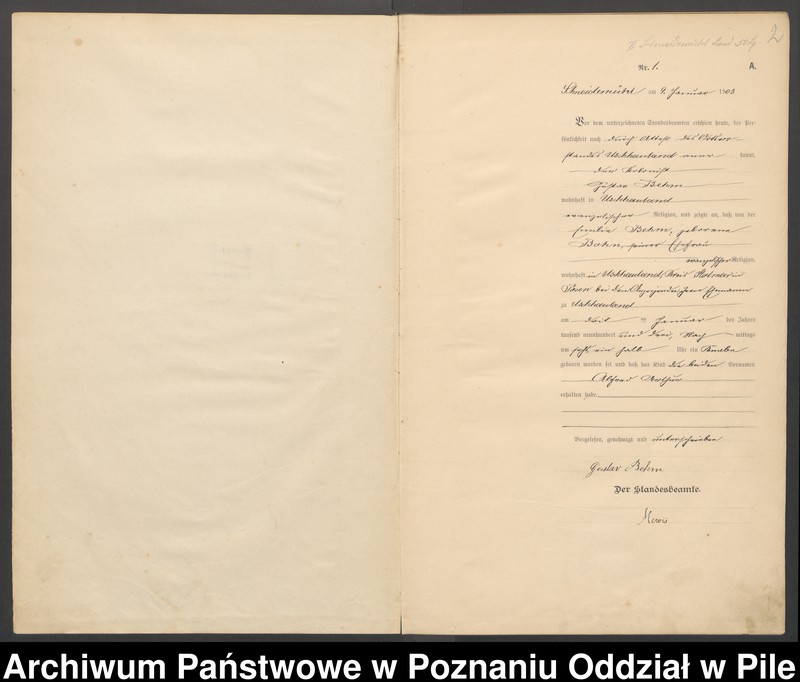 2
Nr. 1.
A.
Schneidemühl am 9. Januar 1903
Vor dem unterzeichneten Standesbeamten erschien heute, der Per-
sönlichkeit nach durch Attest des
standes Uschhauland kannt,
der Kolonist
Gustav Behm
wohnhaft in Uschhauland
evangelischer Religion, und zeigte an, daß von der
Emilie Behm, geborene
Bohn, seiner Ehefrau
evangelischer Religion,
wohnhaft in Uschhauland, Kreis Kolmar in
Posen bei dem Ehemann
zu Uschhauland
am drei ten Januar des Jahres
tausend neunhundert und drei, Nach mittags
um ein halb Uhr ein Knabe
geboren worden sei und daß das Kind die beiden Vornamen
Alfred Arthur
erhalten habe.
Vorgelesen, genehmigt und unterschrieben
Gustav Behm
Der Standesbeamte.
Archiwum Państwowe w Poznaniu Oddział w Pile